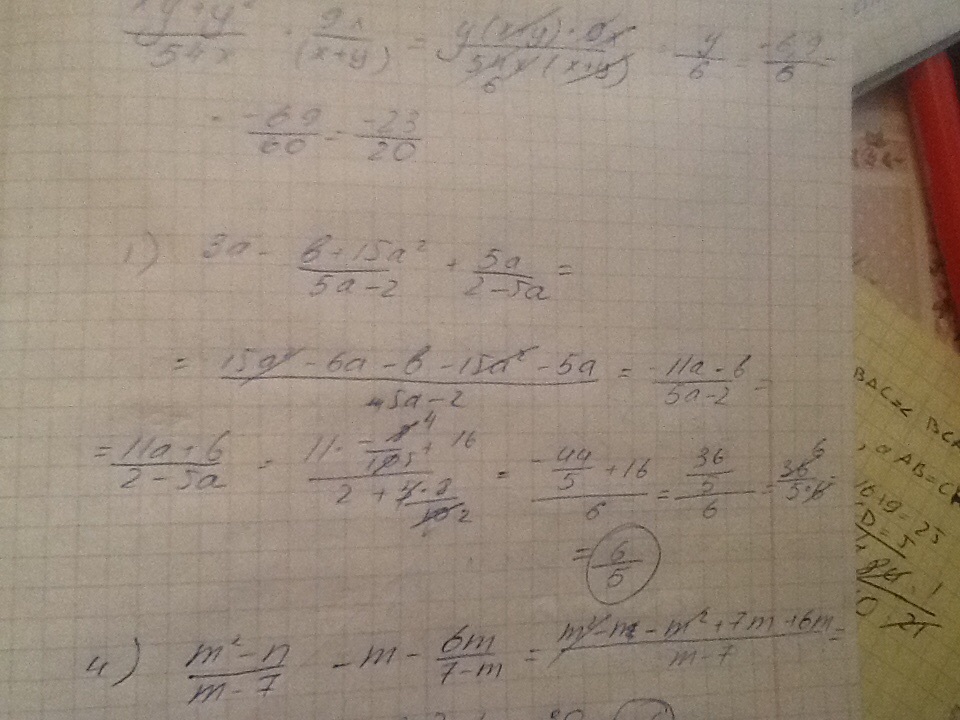 xy+y²/54x · 9x/(x+y) = y(x+y)·9x/54x(x+y) = y/6 = -6,9/6 =
= -69/60 = -23/20
1) 3a - b+15a²/5a-2 + 5a/2-5a =
= 15a² - 6a - b - 15a² - 5a/5a-2 = -11a-b/5a-2 =
= 11a+b/2-5a = = -44/5 + 16/6 = 36/5/6 = 36/5·6 =
= 6/5
4) m²-n/m-7 - m - 6m/7-m = m²-n-m²+7m+6m/m-7 =
BAC=< BCA
, a AB=C
16+9=25
D=5